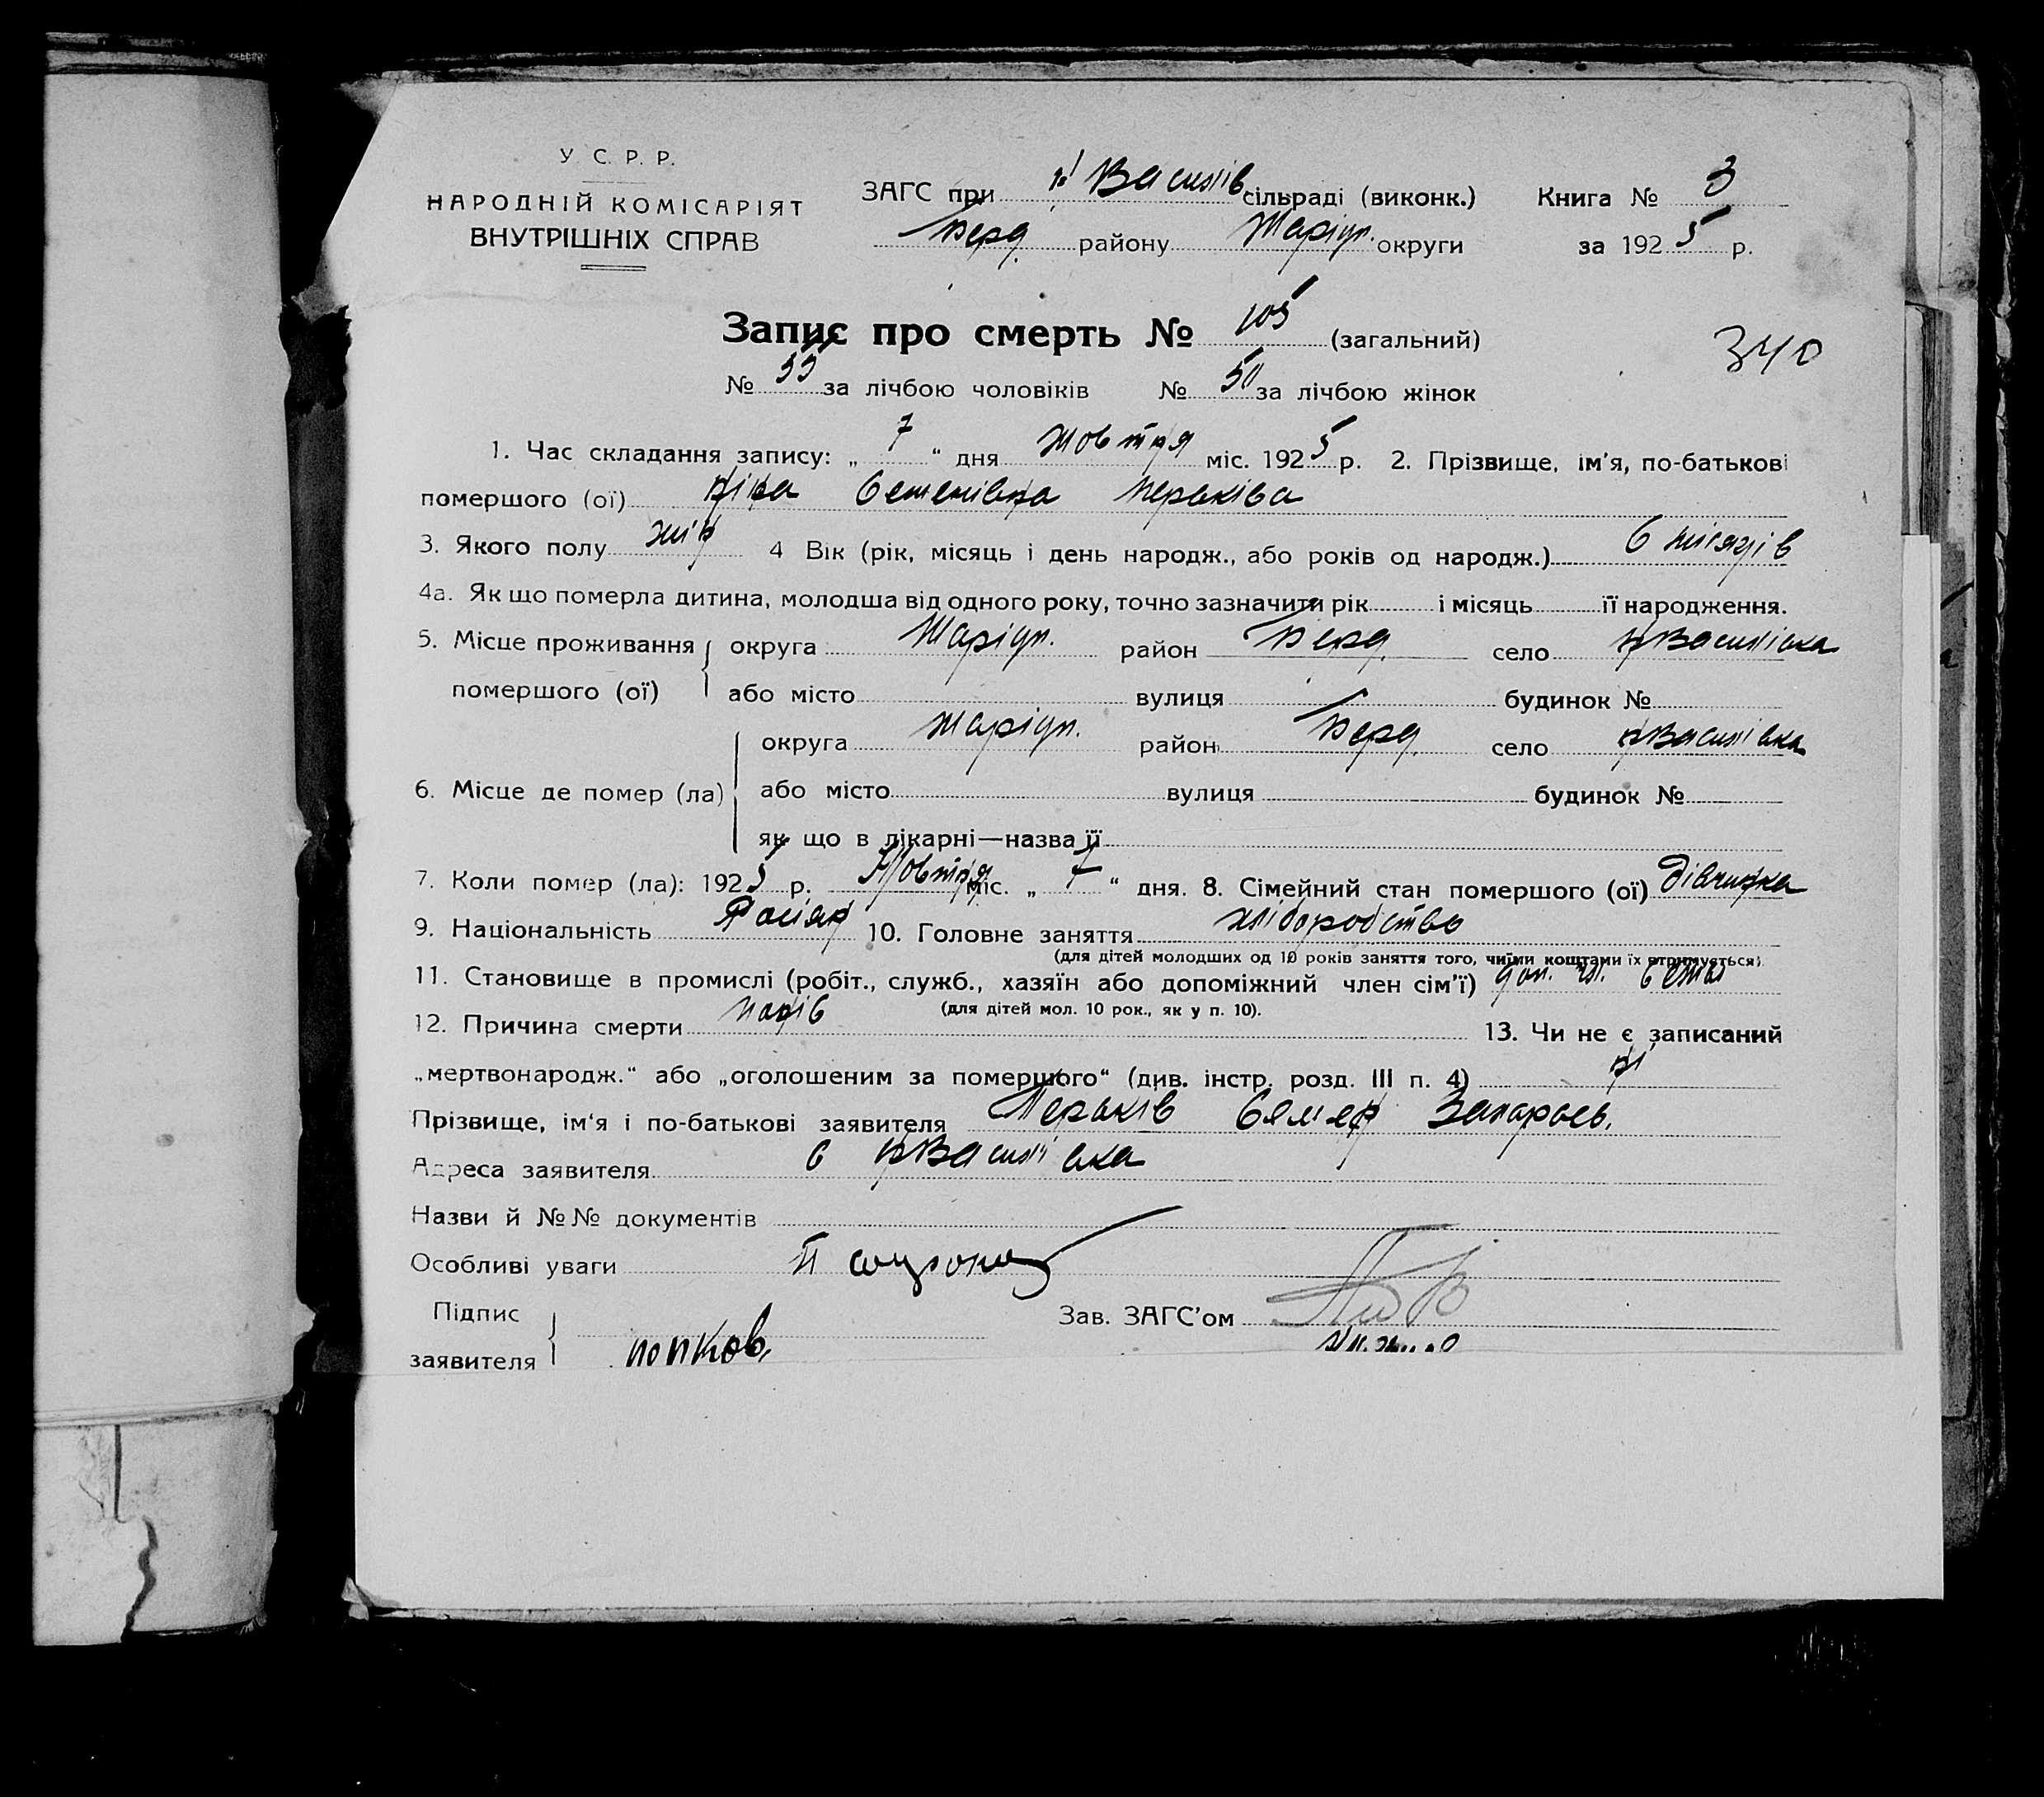 У. С. Р. Р.
НАРОДНІЙ КОМІСАРІЯТ
ВНУТРІШНІХ СПРАВ
ЗАГС при Н Василів сільраді (виконк.) Книга № 3
Берд. району Маріуп. округи за 1925 р.
Запис про смерть № 105 (загальний)
340
№ 55 за лічбою чоловіків № 50 за лічбою жінок
1. Час складання запису: „ 7 “ дня жовтня міс. 1925 р. 2. Прізвище, ім'я, по-батькові
помершого (ої) Ніна Семенівна
3. Якого полу жін 4 Вік (рік, місяць і день народж., або років од народж.) 6 місяців
4а. Як що померла дитина, молодша від одного року, точно зазначити рік і місяць її народження.
5. Місце проживання округа Маріуп. район Берд. село нВасилівка
помершого (ої) або місто вулиця будинок №
округа Маріуп. район Берд. село нВасилівка
6. Місце де помер (ла) або місто вулиця будинок №
як що в лікарні—назва її
7. Коли помер (ла): 1925 р. Жовтня міс. „ 7 “ дня. 8. Сімейний стан помершого (ої) дівчинка
9. Національність 10. Головне заняття хліборобство
(для дітей молодших од 10 років заняття того, чиїми коштами їх втримується)
11. Становище в промислі (робіт., служб., хазяїн або допоміжний член сім'ї) доп. чл. семьи
(для дітей мол. 10 рок., як у п. 10).
12. Причина смерти 13. Чи не є записаний
„мертвонародж.“ або „оголошеним за помершого“ (див. інстр. розд. III п. 4) ні
Прізвище, ім'я і по-батькові заявителя Семен
Адреса заявителя с нВасилівка
Назви й №№ документів
Особливі уваги
Підпис
заявителя
Зав. ЗАГС'ом